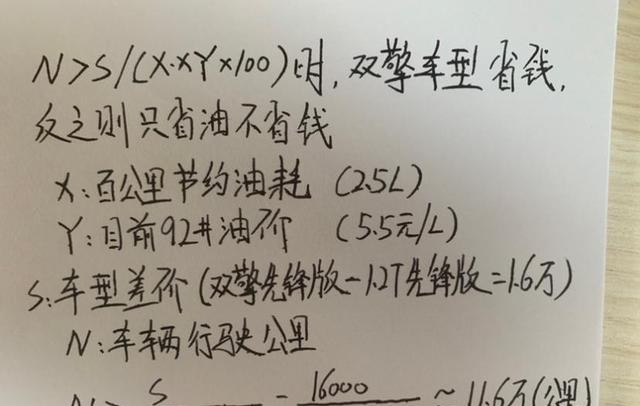 N>S/(X·XY×100)时,双擎车型省钱,
反之则只省油不省钱
X:百公里节约油耗 (2.5L)
Y:目前92#油价 (5.5元/L)
S:车型差价(双擎先锋版-1.2T先锋版=1.6万)
N:车辆行驶公里
S = 16000 ≈ 11.6万(公里)